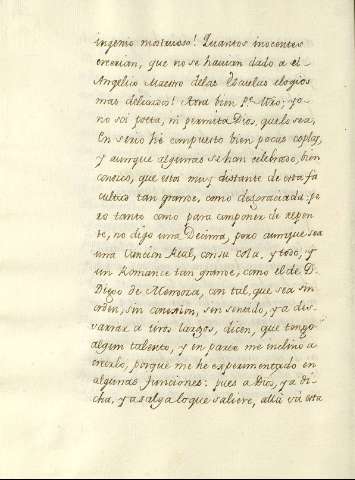 ingenio mostruoso! Quantos inocentes
creerian, que no se havian dado a el
Angelico Maestro delas Escuelas elogios
mas delicados! Aora bien Pe. Nro; yo
no soi poeta, ni permita Dios, quelo sea,
En serio hè compuesto bien pocas coplas,
y aunque algunas se han celebrado, bien
conozco, que estoi muy distante de esta fa
cultad tan grande, como desgraciada: pe
ro tanto como para componer de repen
te, no digo una Decima, pero aunque sea
una Cancion Real, con su cola, y todo, y
un Romance tan grande, como el de D.
Diego de Mendoza, con tal, que sea sin
orden, sin conexion, sin sentido, y a dis-
varrar a tiros largos, dicen, que tengo
algun talento, y en parte me inclino a
creerlo, porque me he experimentado en
algunas funciones: pues a Dios, y a di-
cha, y a salga loque saliere, allà và esta